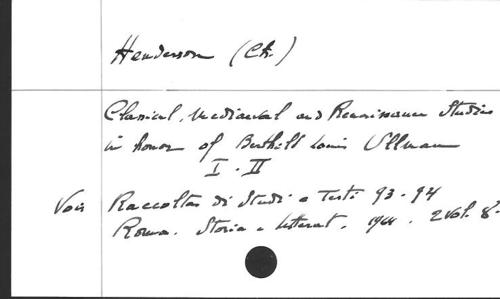 Henderson (Ch.)
Classical, Mediaeval and Renaissance Studies
in honor of Berthold Louis Ullman
I - II
Voir Raccolta di Studi e Testi 93-94
Roma. Storia e Letterat. 1964. 2 vol. 8°